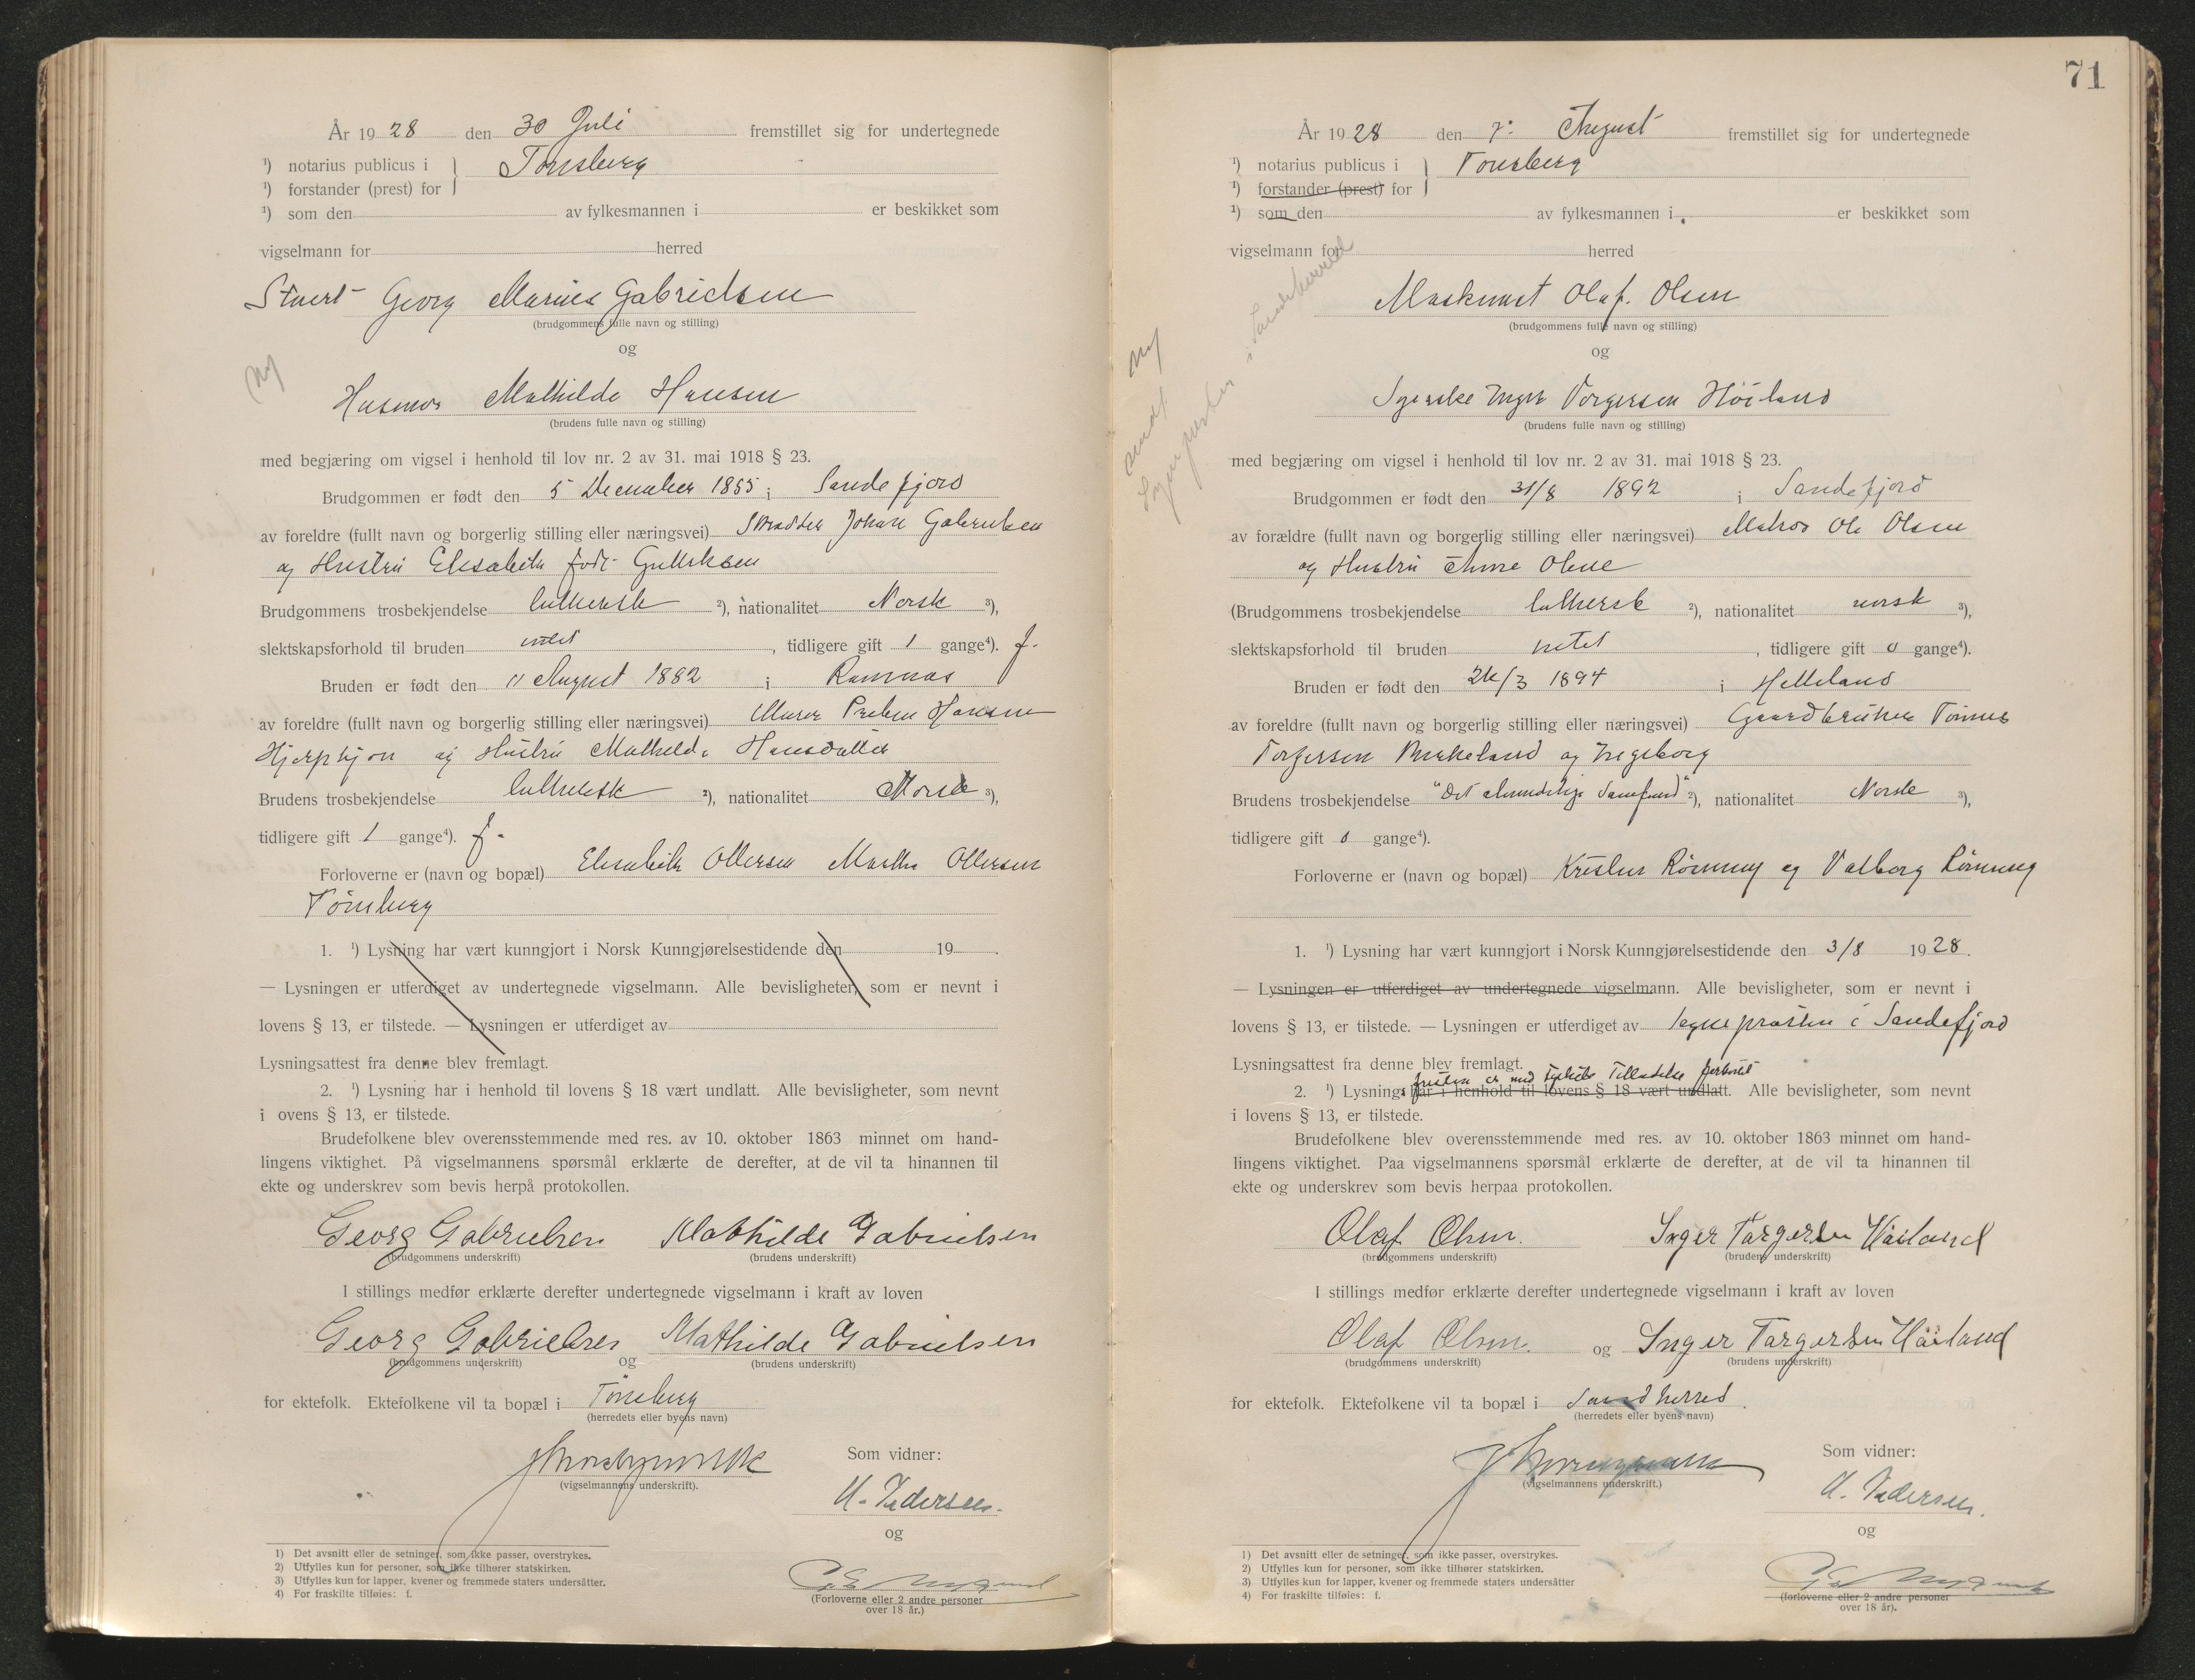 År 19 28 den 30 Juli fremstillet sig for undertegnede
¹) notarius publicus i } Tønsberg
¹) forstander (prest) for
¹) som den av fylkesmannen i er beskikket som
vigselmann for herred
Stuert Georg Marius Gabrielsen
(brudgommens fulle navn og stilling)
og
Husmor Mathilde Hansen
(brudens fulle navn og stilling)
med begjæring om vigsel i henhold til lov nr. 2 av 31. mai 1918 § 23.
Brudgommen er født den 5 December 1885 i Sandefjord
av foreldre (fullt navn og borgerlig stilling eller næringsvei) Skrædder Johan Gabrielsen
og Hustru Elisabeth født Gulliksen
Brudgommens trosbekjendelse luthersk ²), nationalitet Norsk ³),
slektskapsforhold til bruden intet, tidligere gift 1 gange⁴). f.
Bruden er født den 11 August 1882 i Ramnæs
av foreldre (fullt navn og borgerlig stilling eller næringsvei) Murer Preben Hansen
og Hustru Mathilde Hansdatter
Brudens trosbekjendelse luthersk ²), nationalitet Norsk ³),
tidligere gift 1 gange⁴). f.
Forloverne er (navn og bopæl) Elisabeth Ollersen Martha Ollersen
Tönsberg
1. ¹) Lysning har vært kunngjort i Norsk Kunngjørelsestidende den 19 .
— Lysningen er utferdiget av undertegnede vigselmann. Alle bevisligheter, som er nevnt i
lovens § 13, er tilstede. — Lysningen er utferdiget av
Lysningsattest fra denne blev fremlagt.
2. ¹) Lysning har i henhold til lovens § 18 vært undlatt. Alle bevisligheter, som nevnt
i ovens § 13, er tilstede.
Brudefolkene blev overensstemmende med res. av 10. oktober 1863 minnet om hand-
lingens viktighet. På vigselmannens spørsmål erklærte de derefter, at de vil ta hinannen til
ekte og underskrev som bevis herpå protokollen.
Georg Gabrielsen Mathilde Gabrielsen
(brudgommens underskrift) (brudens underskrift)
I stillings medfør erklærte derefter undertegnede vigselmann i kraft av loven
Georg Gabrielsen og Mathilde Gabrielsen
(brudgommens underskrift) (brudens underskrift)
for ektefolk. Ektefolkene vil ta bopæl i Tönsberg
(herredets eller byens navn)
Som vidner:
(vigselmannens underskrift).
H. Pedersen.
og
(Forloverne eller 2 andre personer
over 18 år.)
1) Det avsnitt eller de setninger, som ikke passer, overstrykes.
2) Utfylles kun for personer, som ikke tilhører statskirken.
3) Utfylles kun for lapper, kvener og fremmede staters undersåtter.
4) For fraskilte tilføies: f.
71
År 19 28 den 7. August fremstillet sig for undertegnede
¹) notarius publicus i } Tønsberg
¹) forstander (prest) for
¹) som den av fylkesmannen i er beskikket som
vigselmann for herred
Maskinist Olaf Olsen
(brudgommens fulle navn og stilling)
og
Syerske Inger Torgersen Höiland
(brudens fulle navn og stilling)
med begjæring om vigsel i henhold til lov nr. 2 av 31. mai 1918 § 23.
Brudgommen er født den 31/8 1892 i Sandefjord
av forældre (fullt navn og borgerlig stilling eller næringsvei) Matros Ole Olsen
og Hustru Anne Olsen
(Brudgommens trosbekjendelse luthersk ²), nationalitet norsk ³),
slektskapsforhold til bruden intet, tidligere gift 0 gange⁴).
Bruden er født den 24/3 1894 i Helleland
av foreldre (fullt navn og borgerlig stilling eller næringsvei) Gaardbruker Tönnes
Torgersen Birkeland og Ingeborg
Brudens trosbekjendelse "Det almindelige Samfund" ²), nationalitet Norsk ³),
tidligere gift 0 gange⁴).
Forloverne er (navn og bopæl) Kristen Rönning og Valborg Rönning
1. ¹) Lysning har vært kunngjort i Norsk Kunngjørelsestidende den 3/8 19 28.
— Lysningen er utferdiget av undertegnede vigselmann. Alle bevisligheter, som er nevnt i
lovens § 13, er tilstede. — Lysningen er utferdiget av Sognepræsten i Sandefjord
Lysningsattest fra denne blev fremlagt.
fristen er med Tilladelse forkortet
2. ¹) Lysnings har i henhold til lovens § 18 vært undlatt. Alle bevisligheter, som nevnt
i lovens § 13, er tilstede.
Brudefolkene blev overensstemmende med res. av 10. oktober 1863 minnet om hand-
lingens viktighet. Paa vigselmannens spørsmål erklærte de derefter, at de vil ta hinannen til
ekte og underskrev som bevis herpaa protokollen.
Olaf Olsen. Inger Torgersen Höiland
(brudgommens underskrift) (brudens underskrift)
I stillings medfør erklærte derefter undertegnede vigselmann i kraft av loven
Olaf Olsen. og Inger Torgersen Höiland
(brudgommens underskrift) (brudens underskrift)
for ektefolk. Ektefolkene vil ta bopæl i Sandherred.
(herredets eller byens navn)
Som vidner:
(vigselmannens underskrift.)
H. Pedersen.
og
(forloverne eller 2 andre personer
over 18 år).
1) Det avsnitt eller de setninger, som ikke passer, overstrykes.
2) Utfylles kun for personer, som ikke tilhører statskirken.
3) Utfylles kun for lapper, kvener og fremmede staters undersåtter
4) For fraskilte tilføies: f.